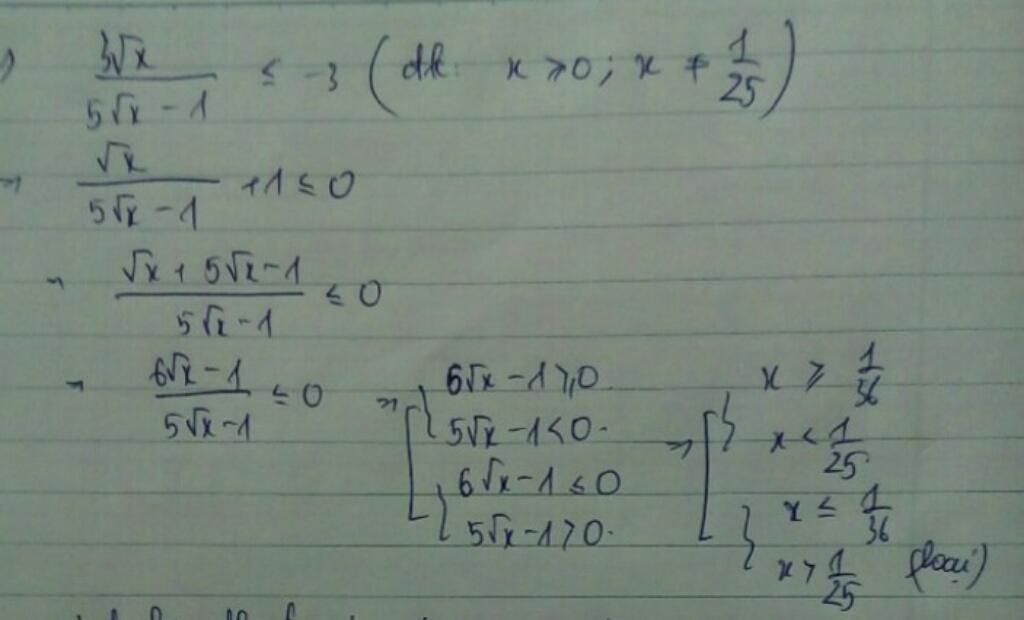 ) 3√x / (5√x - 1) ≤ -3 (đk: x ≥ 0; x ≠ 1/25)
⇒ √x / (5√x - 1) + 1 ≤ 0
⇒ (√x + 5√x - 1) / (5√x - 1) ≤ 0
⇒ (6√x - 1) / (5√x - 1) ≤ 0 ⇒ [ { 6√x - 1 ≥ 0
5√x - 1 < 0
{ 6√x - 1 ≤ 0
5√x - 1 > 0
⇒ [ { x ≥ 1/36
x < 1/25
{ x ≤ 1/36
x > 1/25 (loại)